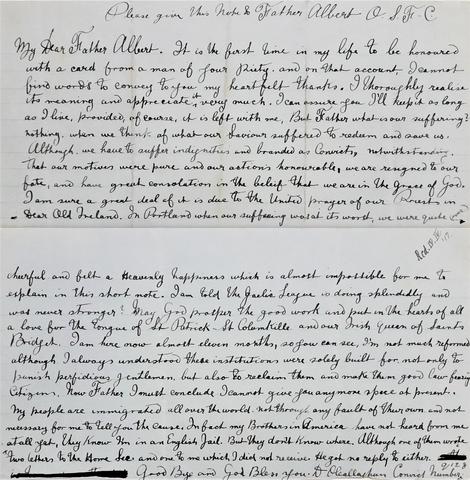 Please give this Note to Father Albert O S F C
My Dear Father Albert. It is the first time in my life to be honoured
with a card from a man of your Piety. and on that account, I cannot
find words to convey to you, my heartfelt thanks. I thoroughly realise
its meaning and appreciate it very much. I can assure you I'll keep it as long
as I live, provided, of course, it is left with me, But Father what is our suffering?
nothing. when we think of what our Saviour suffered to redeem and save us.
Although we have to suffer indignities and branded as Convicts, notwithstanding
that our motives were pure and our actions honourable, we are resigned to our
fate, and have great consolation in the belief that we are in the Grace of God.
I am sure a great deal of it is due to the United prayer of our Priests in
Dear Old Ireland. In Portland when our suffering was at its worst, we were quite
Recd. IV. 17.
cheerful and felt a Heavenly happiness which is almost impossible for me to
explain in this short note. I am told the Gaelic League is doing splendidly and
was never stronger? May God prosper the good work and put in the hearts of all
a love for the Tongue of St Patrick - St Columkille and our Irish Queen of Saints
Bridget. I am here now almost eleven months, so you can see, I'm not much reformed
although I always understood these institutions were solely built for, not only to
punish perfidious gentlemen, but also to reclaim them and make them good law fearing
Citizens. Now Father I must conclude I cannot give you any more space at present.
My people are immigrated all over the world. not through any fault of their own and not
necessary for me to tell you the cause. In fact my Brothers in America have not heard from me
at all yet, they know I'm in an English Jail. But they don't know where, Although one of them wrote
two letters to the Home Sec. and one to me which I did not receive. No reply to either.
Good Bye and God Bless you. D O'Callaghan Convict Number
q.123